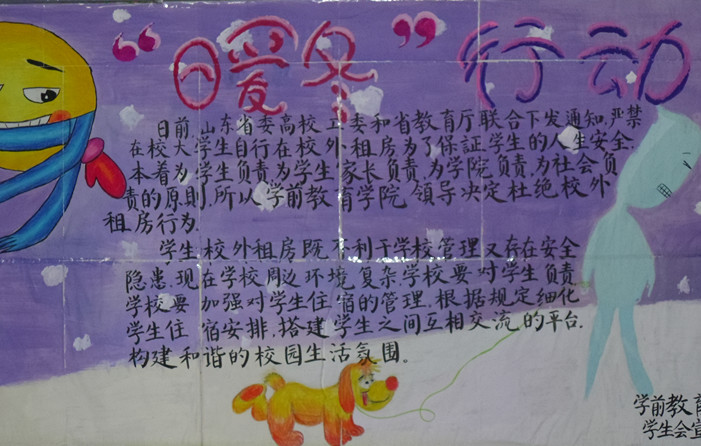 “暖冬”行动
日前,山东省委高校工委和省教育厅联合下发通知,严禁
在校大学生自行在校外租房为了保证学生的人生安全.
本着为学生负责,为学生家长负责,为学院负责,为社会负
责的原则,所以学前教育学院领导决定杜绝校外
租房行为.
学生校外租房既不利于学校管理又存在安全
隐患.现在学校周边环境复杂,学校要对学生负责
学校要加强对学生住宿的管理.根据规定细化
学生住宿安排.搭建学生之间互相交流的平台.
构建和谐的校园生活氛围。
学前教育
学生会宣